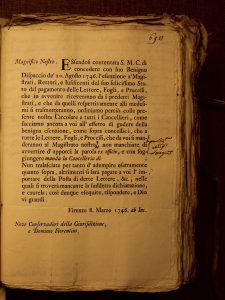 Magnifico Nostro.
Essendosi contentata S. M. C. di
concedere con suo Benigno
Dispaccio de' 20. Agosto 1746. l'esenzione a' Magi-
strati, Rettori, e Iusdicenti del suo felicissimo Sta-
to del pagamento delle Lettere, Fogli, e Processi,
che in avvenire riceveranno da i predetti Magi-
strati, e che da quelli respettivamente alli mede-
simi si trasmetteranno, ordiniamo perciò colla pre-
sente nostra Circolare a tutti i Cancellieri, come
facciamo ancora a voi all' effetto di godere della
benigna esenzione, come sopra concedasi, che a
tutte le Lettere, Fogli, e Processi, che da voi si man-
deranno al Magistrato nostro, non manchiate di
avvertire d'apporci la parola ex officio, e con sog-
giungere manda la Cancelleria di
Non tralasciate per tanto d'adempire esattamente
quanto sopra, altrimenti si farà pagare a voi l' im-
portare della Posta di dette Lettere, &c., nelle
quali si troverà mancante la suddetta dichiarazione,
e cautela; così dunque eseguite, rispondete, e Dio
vi guardi.
Firenze 8. Marzo 1746. ab Inc.
Nove Conservadori della Giurisdizione,
e Dominio Fiorentino.